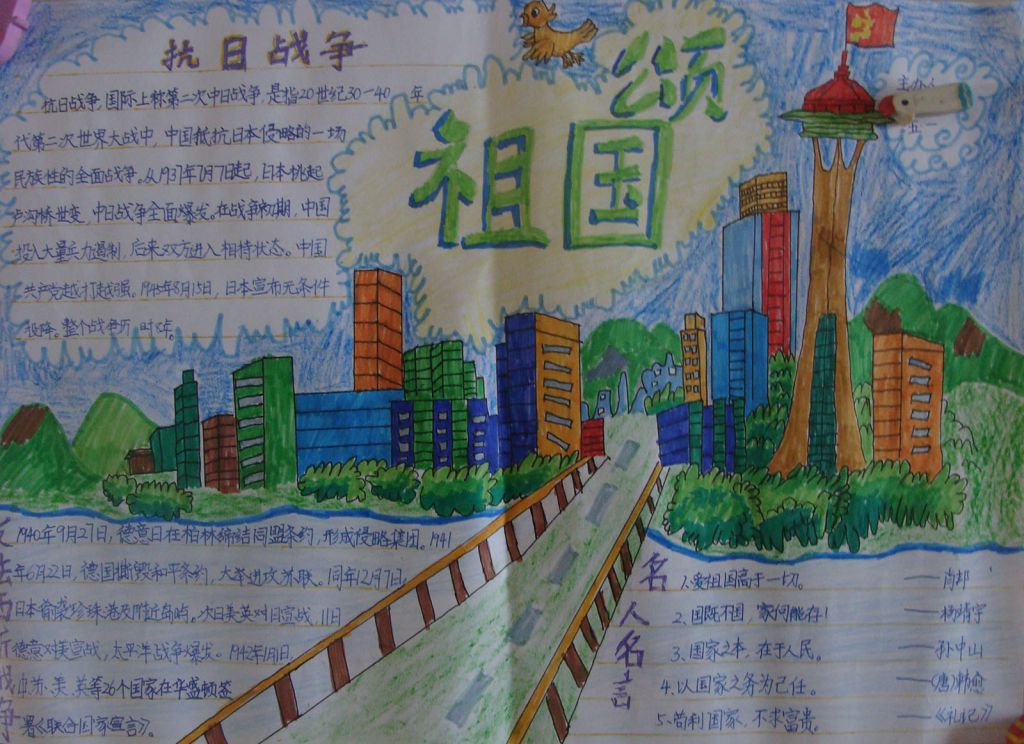 抗日战争
颂
祖国
主办
五一
抗日战争,国际上称第二次中日战争,是指20世纪30—40年
代第二次世界大战中,中国抵抗日本侵略的一场
民族性的全面战争。从1937年7月7日起,日本挑起
卢沟桥世变,中日战争全面爆发。在战争初期,中国
投入大量兵力遏制,后来双方进入相持状态。中国
共产党越打越强。1945年8月15日,日本宣布无条件
投降。整个战争历时8年。
反法西斯战争
1940年9月27日,德意日在柏林缔结同盟条约,形成侵略集团。1941
年6月22日,德国撕毁和平条约,大举进攻苏联。同年12月7日,
日本偷袭珍珠港及附近岛屿。次日美英对日宣战,11日
德意对美宣战,太平洋战争爆发。1942年1月1日,
中、苏、美、英等26个国家在华盛顿签
署《联合国家宣言》。
名人名言
1、爱祖国高于一切。——肖邦
2、国既不国,家何能存!——杨靖宇
3、国家之本,在于人民。——孙中山
4、以国家之务为己任。——(唐)韩愈
5、苟利国家,不求富贵。——《礼记》